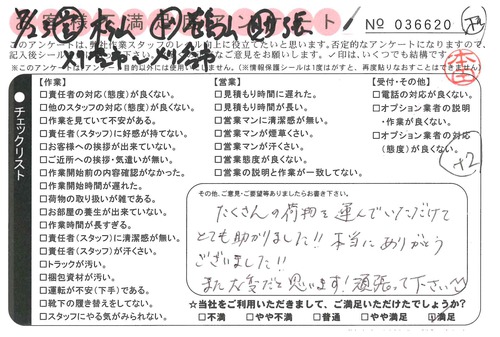 お客様満足アンケート
No 036620
このアンケートは、弊社作業スタッフのレベル向上に役立てたいと思います。否定的なアンケートになりますので、
記入後シール
をご意見お願いします。✓印は、いくつでも結構です。
※このアンケートは
アンケート目的以外には使用いたしません。(※情報保護シールは1度はがすと、再度貼りなおすことはできません)
チェックリスト
【作業】
□責任者の対応(態度)が良くない。
□他のスタッフの対応(態度)が良くない。
□作業を見ていて不安がある。
□責任者(スタッフ)に好感が持てない。
□お客様への挨拶が出来ていない。
□ご近所への挨拶・気遣いが無い。
□作業開始前の内容確認がなかった。
□作業開始時間が遅れた。
□荷物の取り扱いが雑である。
□お部屋の養生が出来ていない。
□作業時間が長すぎる。
□責任者(スタッフ)に清潔感が無い。
□責任者(スタッフ)が汗くさい。
□トラックが汚い。
□梱包資材が汚い。
□運転が不安(下手)である。
□靴下の履き替えをしてない。
□スタッフにやる気がみられない。
【営業】
□見積もり時間に遅れた。
□見積もり時間が長い。
□営業マンに清潔感が無い。
□営業マンが煙草くさい。
□営業マンが汗くさい。
□営業態度が良くない。
□営業の説明と作業が一致してない。
【受付・その他】
□電話の対応が良くない。
□オプション業者の説明
・作業が良くない。
□オプション業者の対応
(態度)が良くない。
+2
その他、ご意見・ご要望等ありましたらお書き下さい。
たくさんの荷物を運んでいただけて
とても助かりました!!本当にありがとう
ございました!!
また大変だと思います!頑張って下さい
☆当社をご利用いただきまして、ご満足いただけたでしょうか?
□不満 □やや不満 □普通 □やや満足 ☑満足